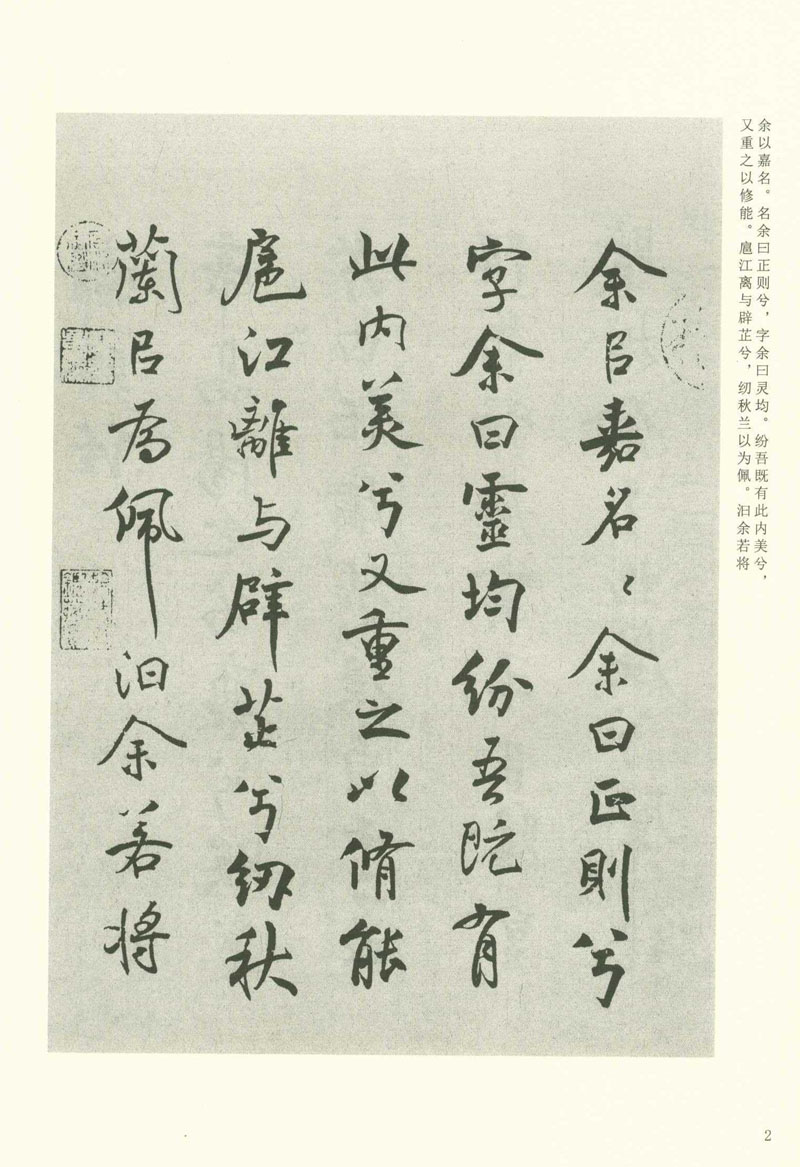 余以嘉名。名余曰正则兮，字余曰灵均。纷吾既有此内美兮，
又重之以修能。扈江离与辟芷兮，纫秋兰以为佩。汩余若将
余㠯嘉名〻余曰正則兮
字余曰靈均紛吾既有
此内美兮又重之以脩能
扈江離与辟芷兮紉秋
蘭㠯為佩汩余若将
2